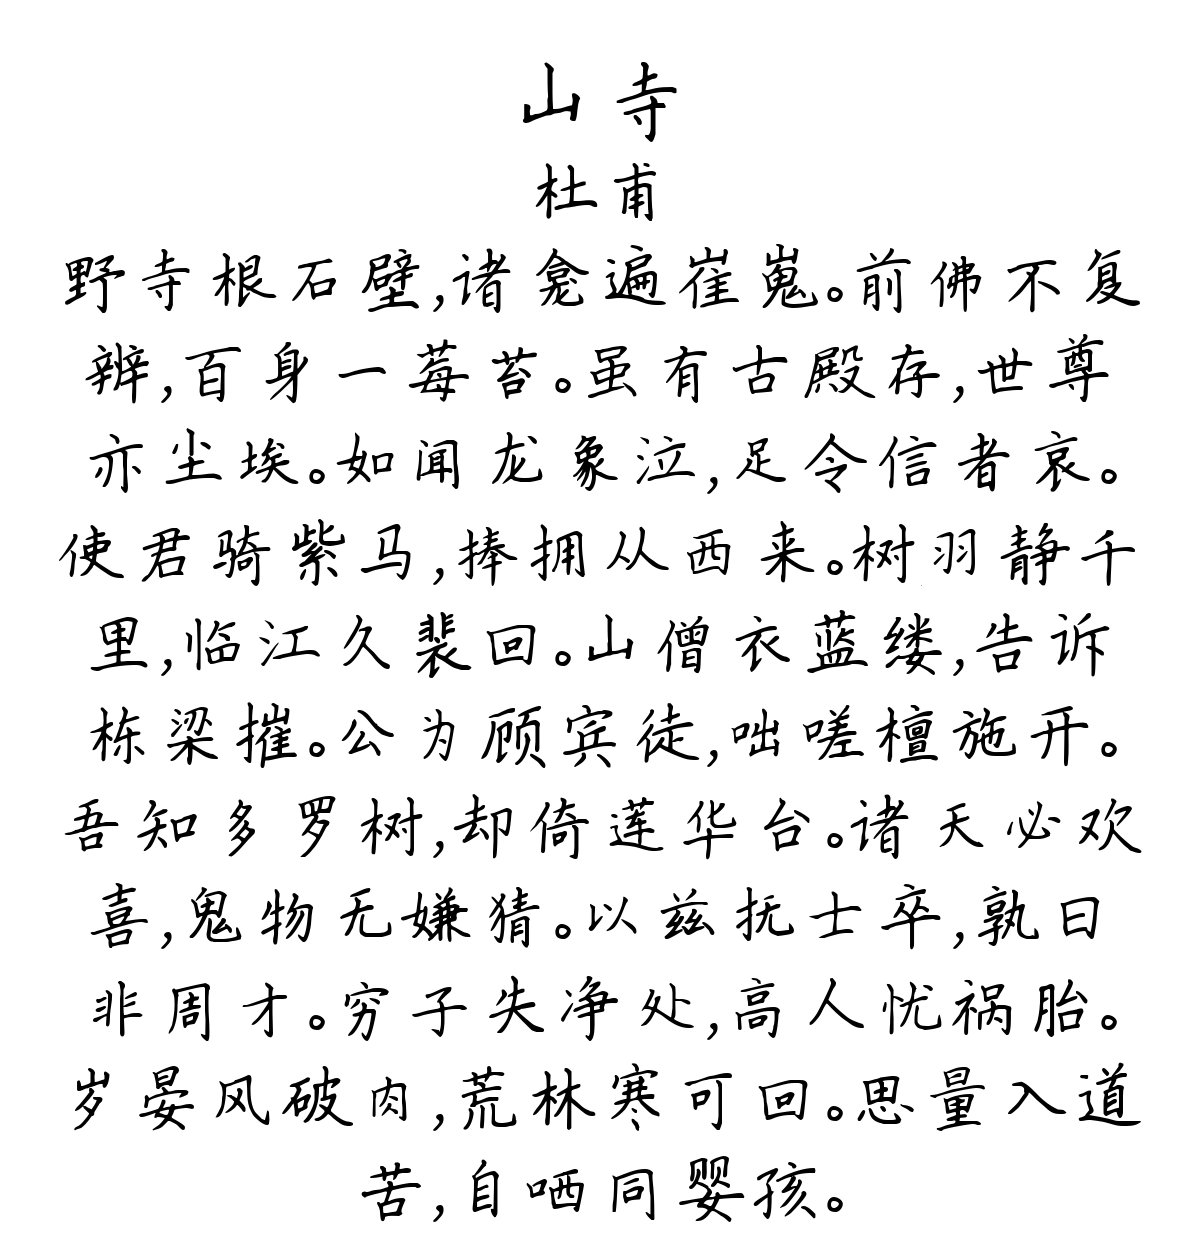 山寺
杜甫
野寺根石壁,诸龛遍崔嵬。前佛不复
辨,百身一莓苔。虽有古殿存,世尊
亦尘埃。如闻龙象泣,足令信者哀。
使君骑紫马,捧拥从西来。树羽静千
里,临江久裴回。山僧衣蓝缕,告诉
栋梁摧。公为顾宾徒,咄嗟檀施开。
吾知多罗树,却倚莲华台。诸天必欢
喜,鬼物无嫌猜。以兹抚士卒,孰曰
非周才。穷子失净处,高人忧祸胎。
岁晏风破肉,荒林寒可回。思量入道
苦,自哂同婴孩。